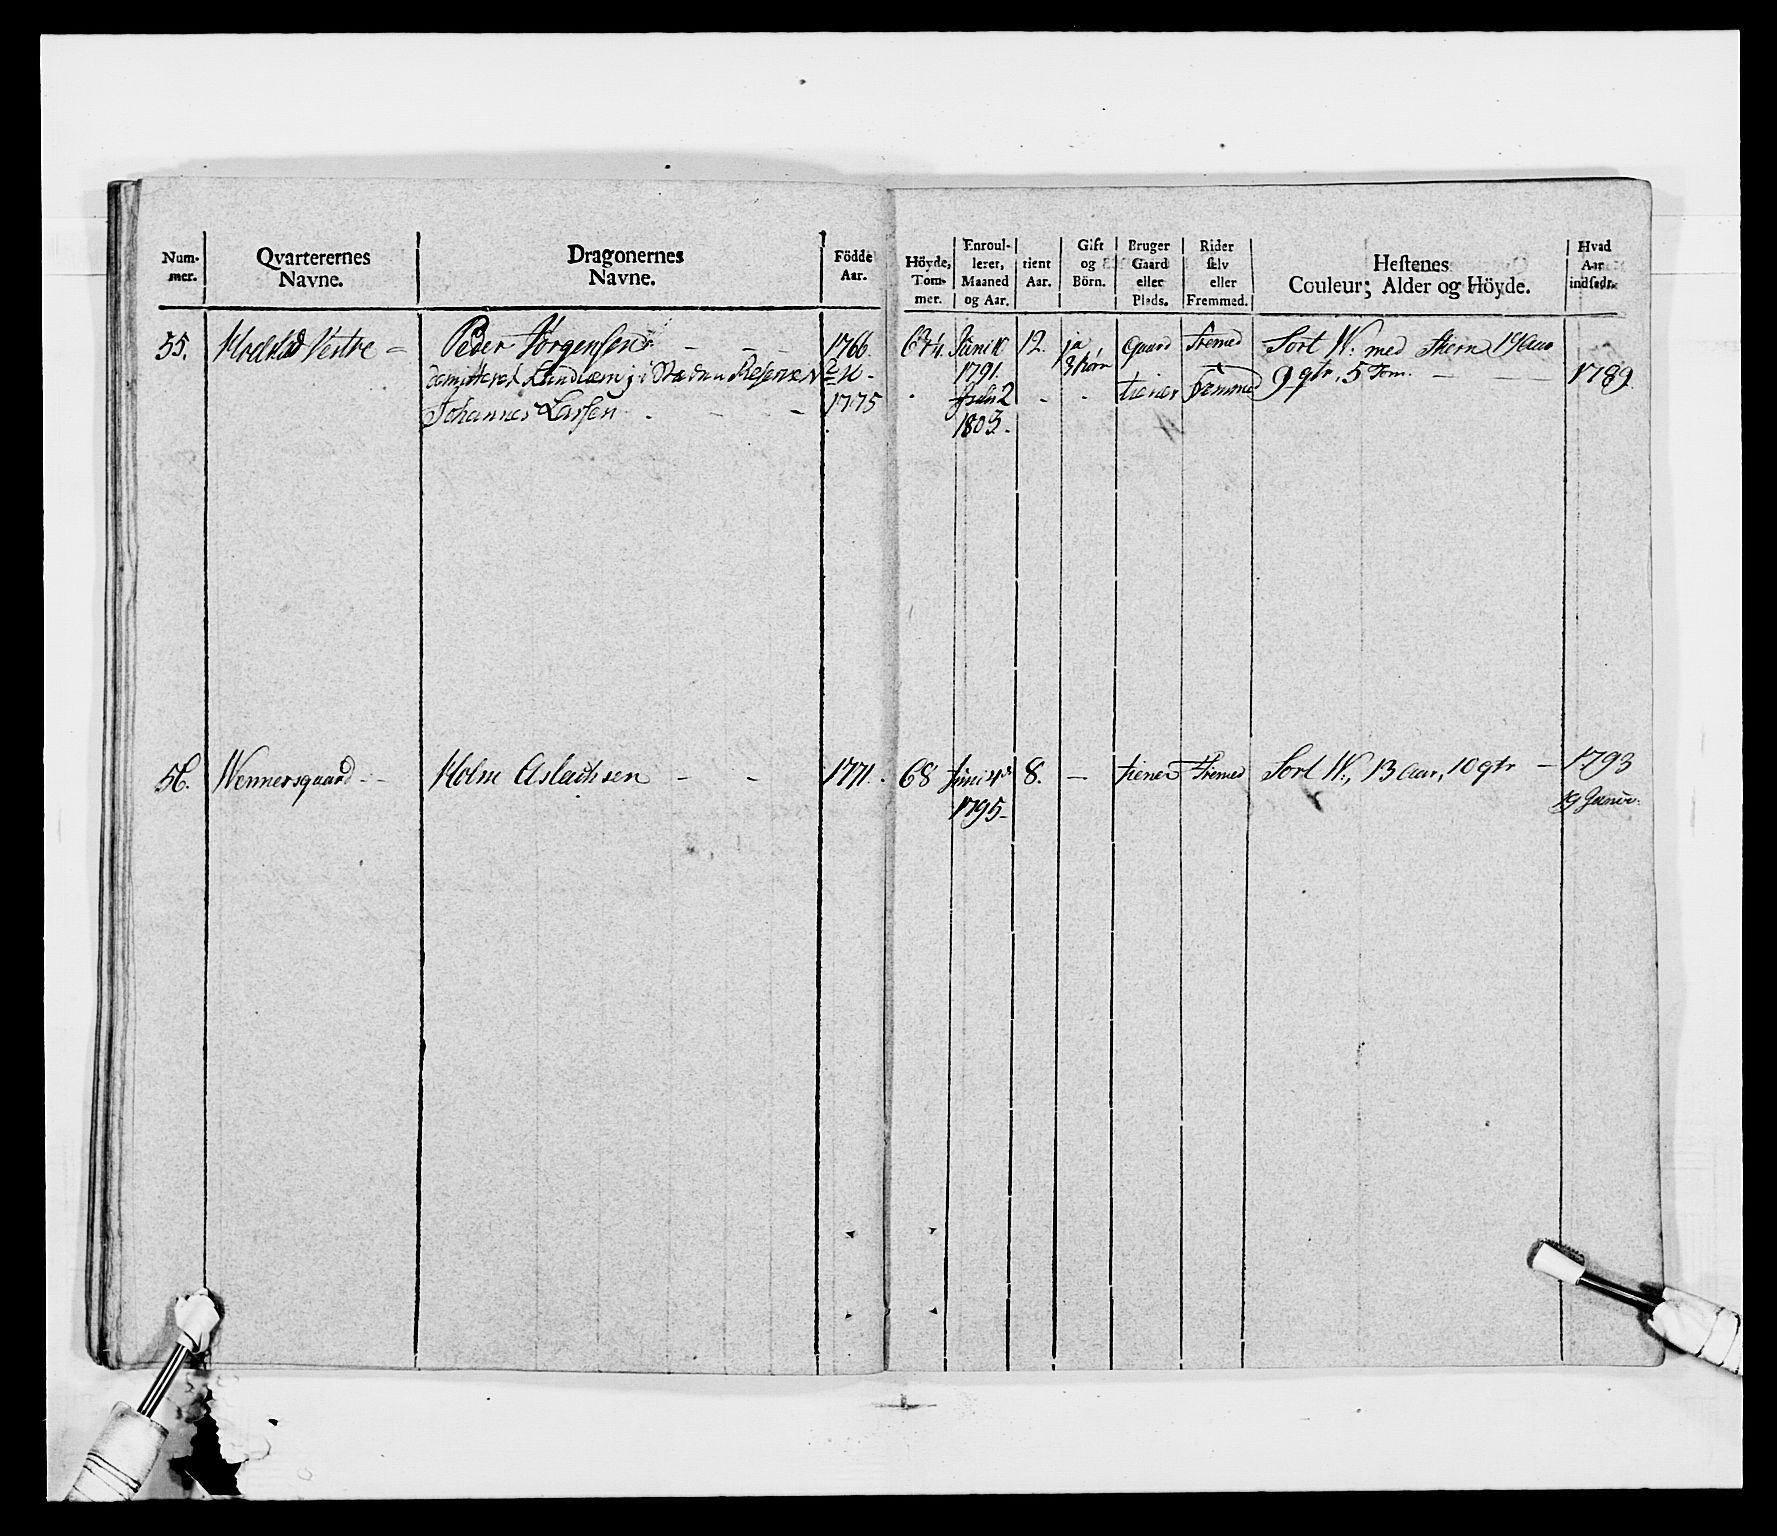 Num-
mer.
Qvarterernes
Navne.
Dragonernes
Navne.
Födde
Aar.
Höyde,
Tom-
mer.
Enroul-
leret,
Maaned
og Aar.
tient
Aar.
Gift
og
Börn.
Bruger
Gaard
eller
Plads.
Rider
selv
eller
Fremmed.
Hestenes
Couleur; Alder og Höyde.
Hvad
Aar
indsadt.
55. Vestre Peder Jörgensen 1766. 67¼ Juni 12. ja Gaard Fremed Sort W: med Stern
1791. 3 börn 9 qtr, 5 Tom. 1789.
Reserven
Johannes Larsen 1775 2 tiener Fremmed
1803.
56. Wennersgaard Holm Aslachsen 1771. 68 Juni 8. tiener Fremed Sort W:, 13 Aar, 10 qtr 1793
1795